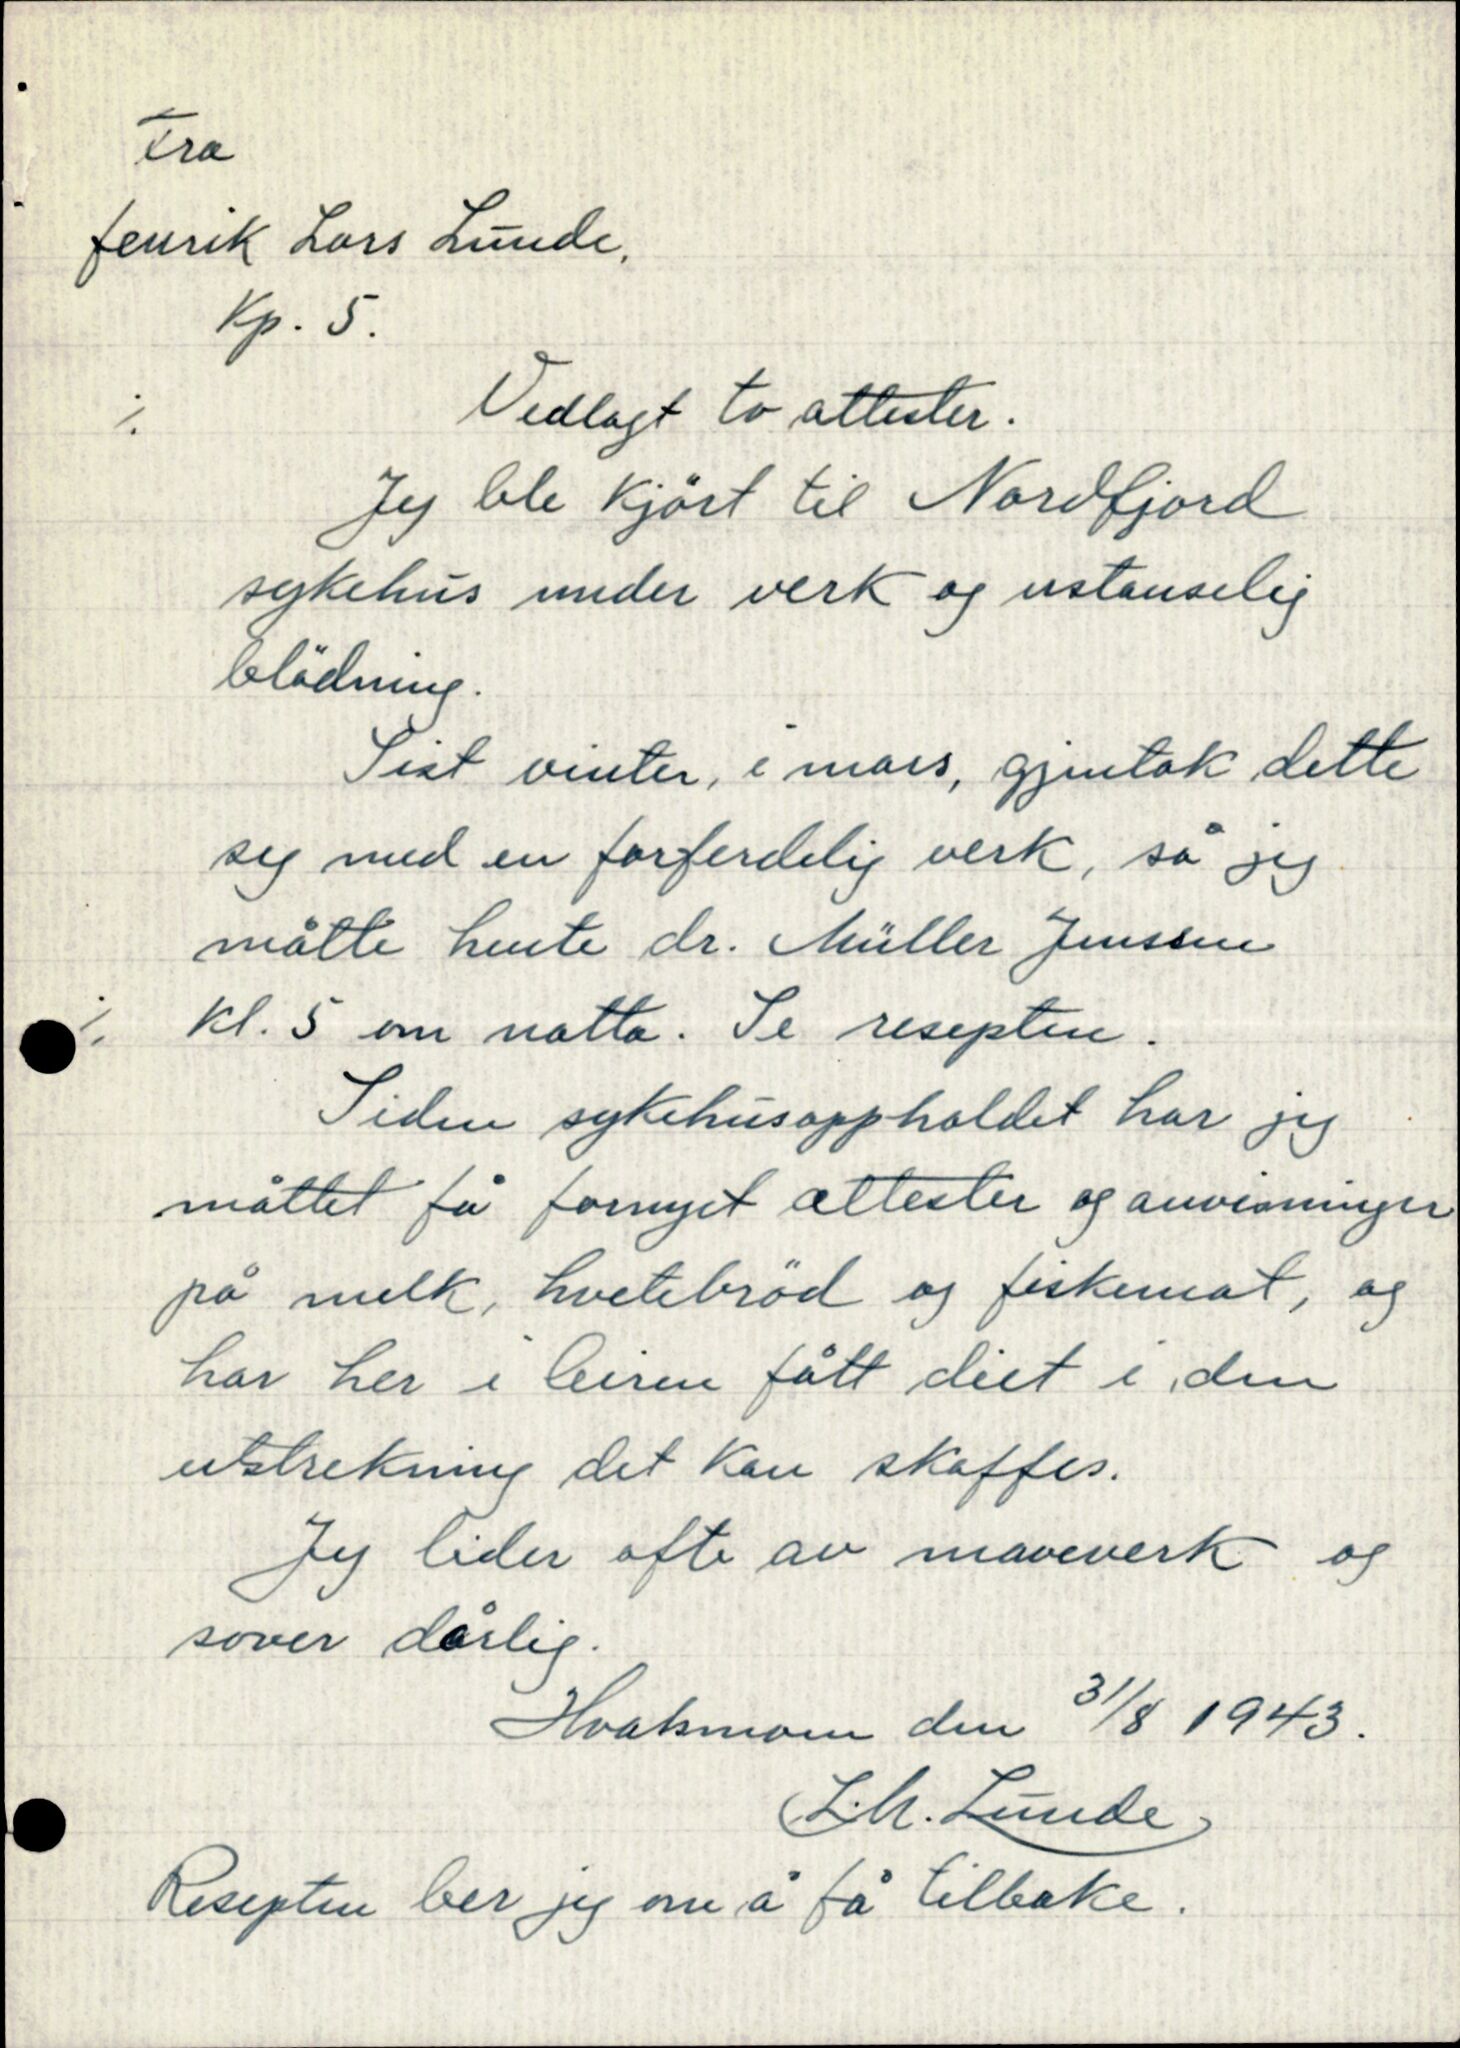 Fra
fenrik Lars Lunde.
Kp. 5.
./. Vedlagt to attester.
Jeg ble kjört til Nordfjord
sykehus under verk og ustanselig
blödning.
Sist vinter, i mars, gjentok dette
seg med en forferdelig verk, så jeg
måtte hente dr. Müller Jenssen
./. kl. 5 om natta. Se resepten.
Siden sykehusoppholdet har jeg
måttet få fornyet attester og anvisninger
på melk, hvetebröd og fiskemat, og
har her i leiren fått diet i den
utstrekning det kan skaffes.
Jeg lider ofte av maveverk og
sover dårlig.
Hvalsmoen den 31/8 1943.
L. M. Lunde
Resepten ber jeg om å få tilbake.